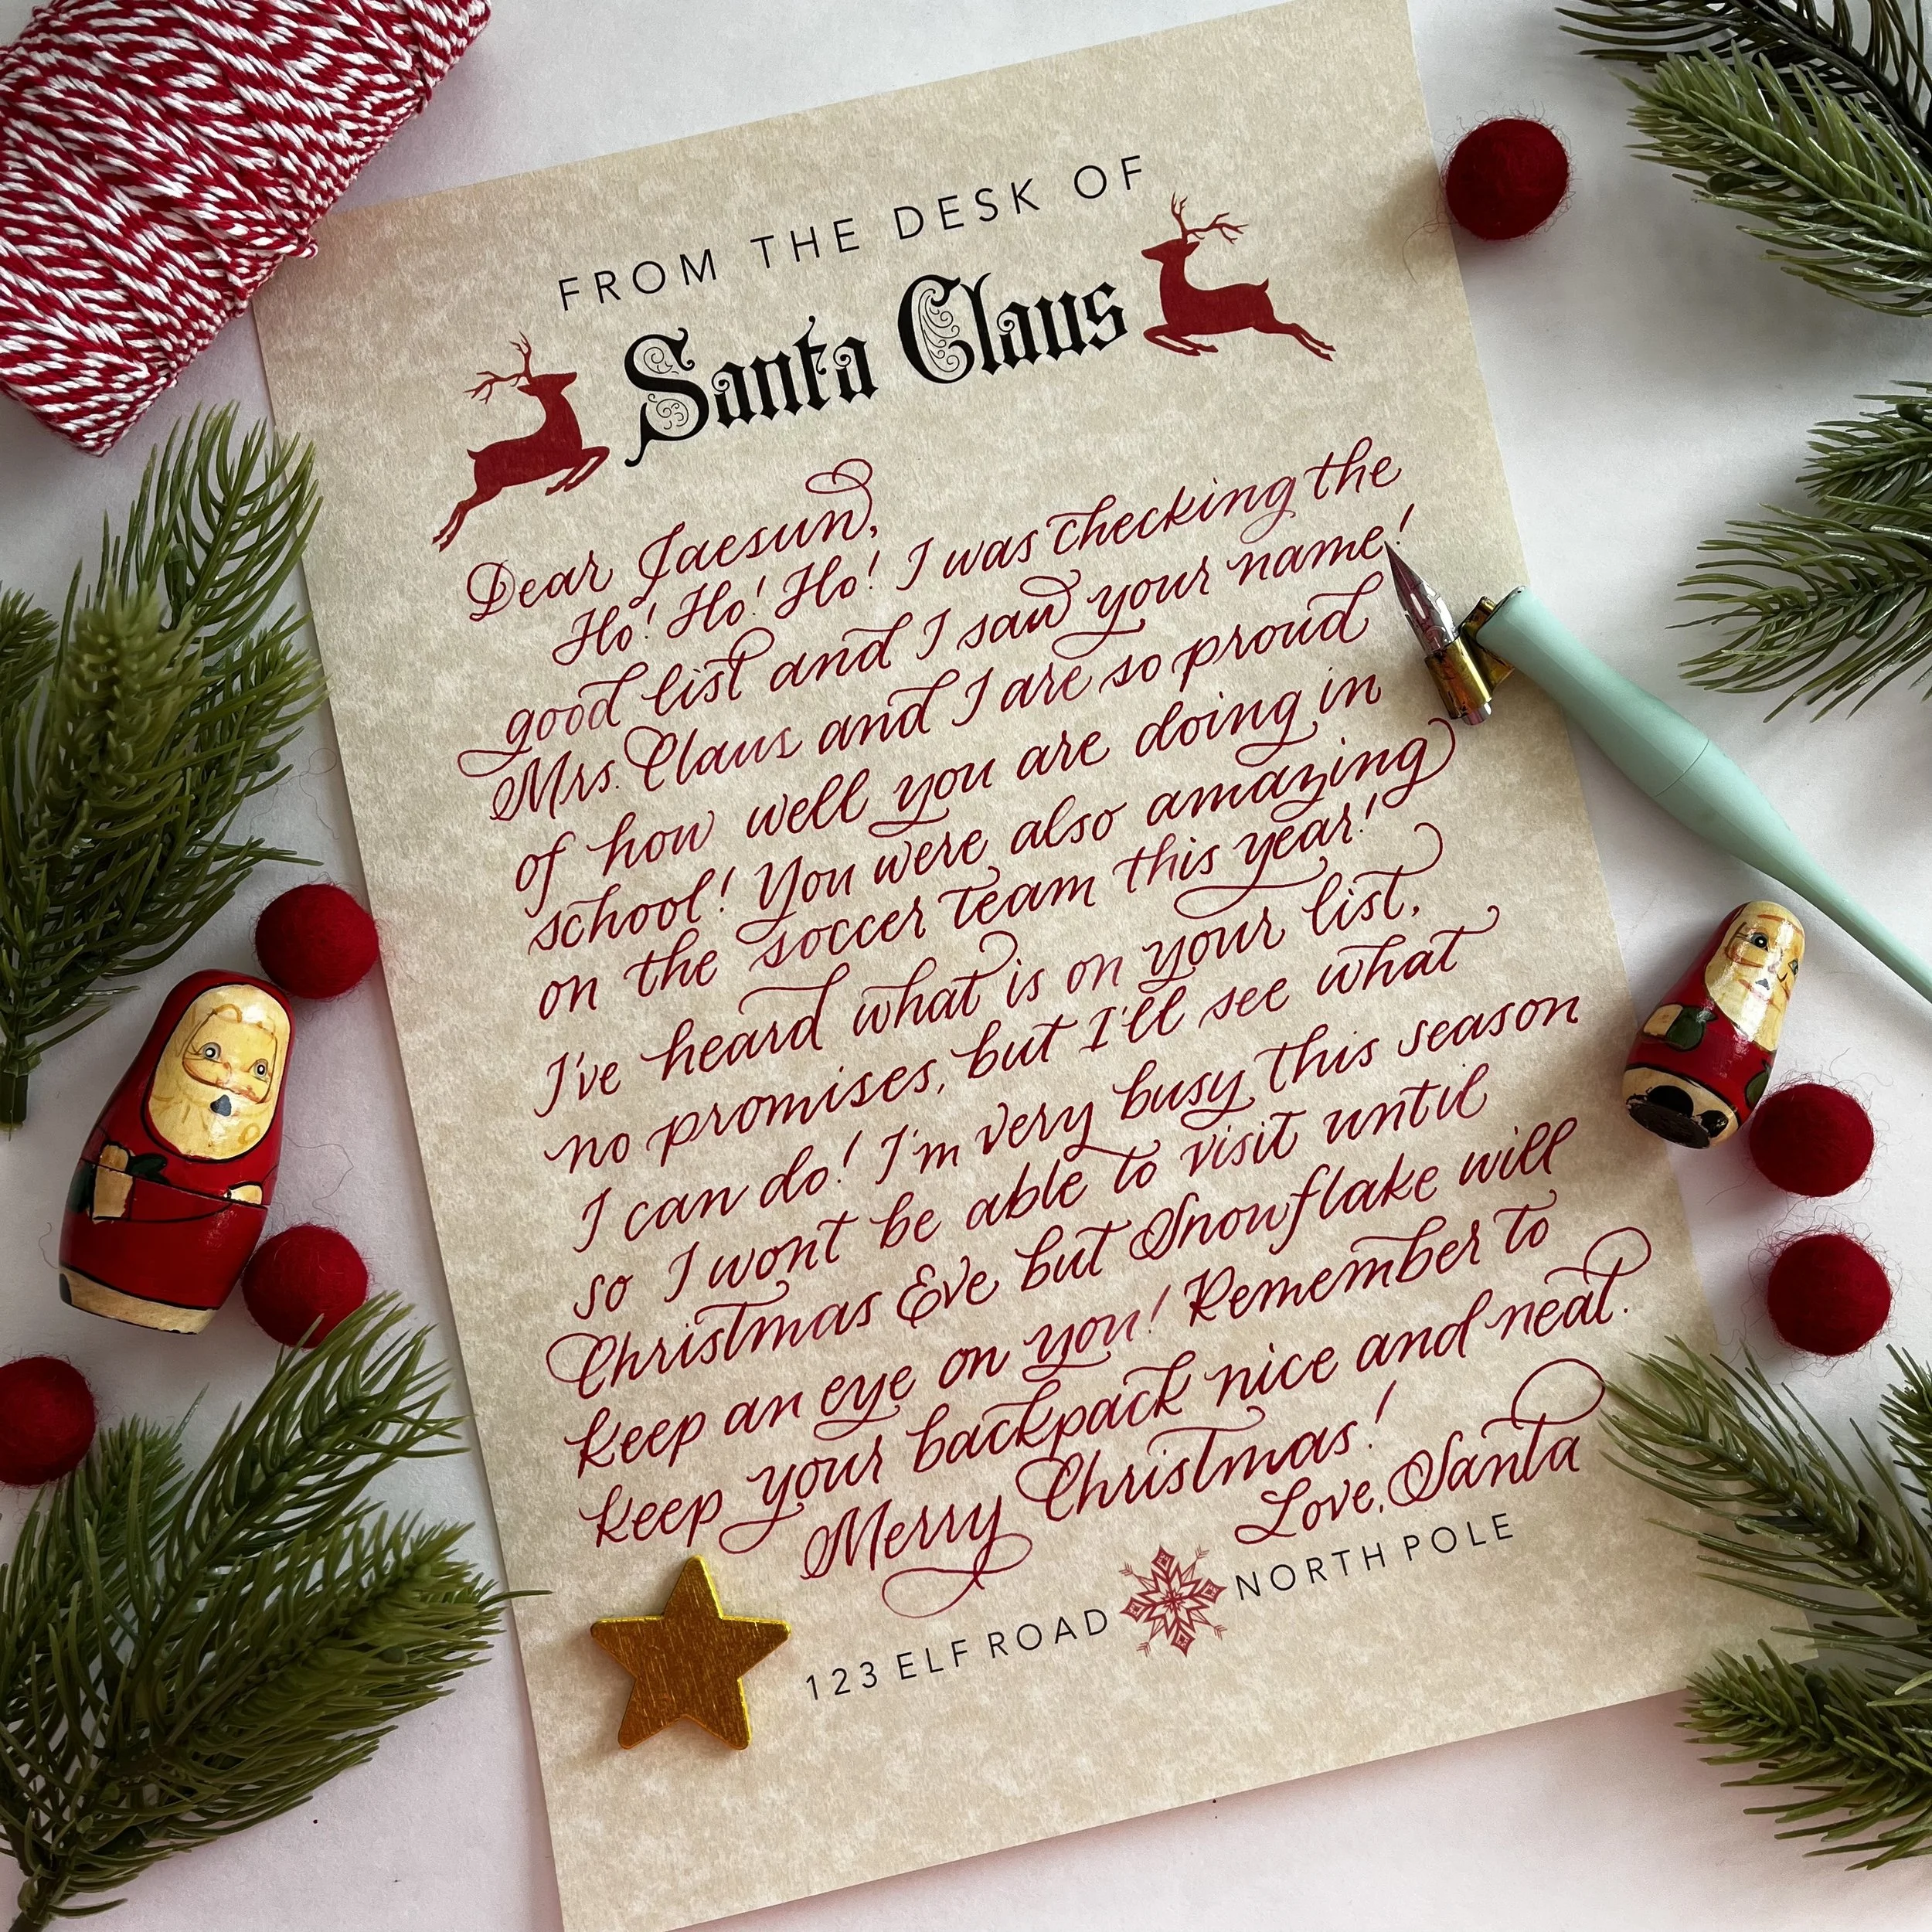 FROM THE DESK OF
Santa Claus
Dear Jaesun,
Ho! Ho! Ho! I was checking the
good list and I saw your name!
Mrs. Claus and I are so proud
of how well you are doing in
school! You were also amazing
on the soccer team this year!
I've heard what is on your list,
no promises, but I'll see what
I can do! I'm very busy this season
so I won't be able to visit until
Christmas Eve but Snowflake will
keep an eye on you! Remember to
keep your backpack nice and neat.
Merry Christmas!
Love, Santa
123 ELF ROAD NORTH POLE